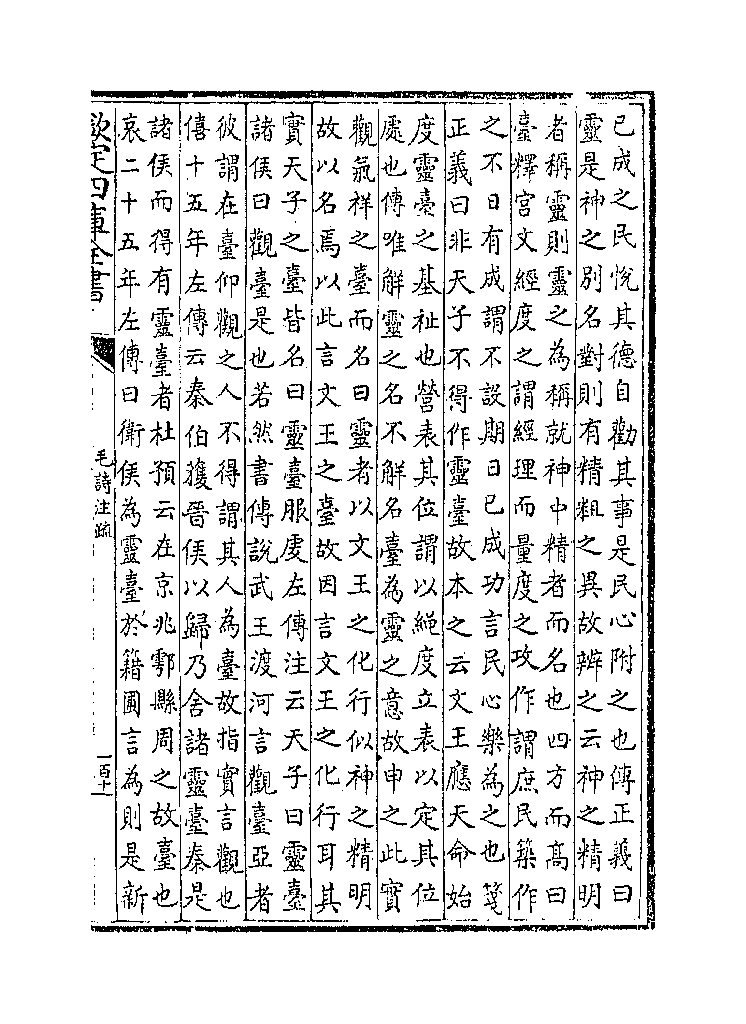 已成之民悅其德自勸其事是民心附之也傳正義曰
靈是神之別名對則有精粗之異故辨之云神之精明
者稱靈則靈之為稱就神中精者而名也四方而髙曰
臺釋宫文經度之謂經理而量度之攻作謂庶民築作
之不日有成謂不設期日已成功言民心樂為之也箋
正義曰非天子不得作靈臺故本之云文王應天命始
度靈臺之基祉也營表其位謂以繩度立表以定其位
處也傳唯解靈之名不解名臺為靈之意故申之此實
觀氣祥之臺而名曰靈者以文王之化行似神之精明
故以名焉以此言文王之臺故因言文王之化行耳其
實天子之臺皆名曰靈臺服虔左傳注云天子曰靈臺
諸侯曰觀臺是也若然書傳說武王渡河言觀臺亞者
彼謂在臺仰觀之人不得謂其人為臺故指實言觀也
僖十五年左傳云秦伯獲晉侯以歸乃舍諸靈臺秦是
諸侯而得有靈臺者杜預云在京兆鄠縣周之故臺也
哀二十五年左傳曰衛侯為靈臺於籍圃言為則是新
欽定四庫全書
毛詩注疏
一百十